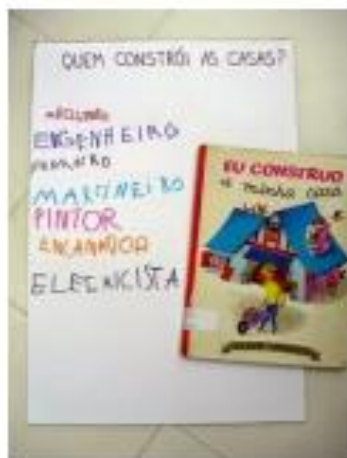 QUEM CONSTRÓI AS CASAS?
ENGENHEIRO
MARCINEIRO
PINTOR
ENCANADOR
ELETRICISTA
EU CONSTRUO
a minha casa